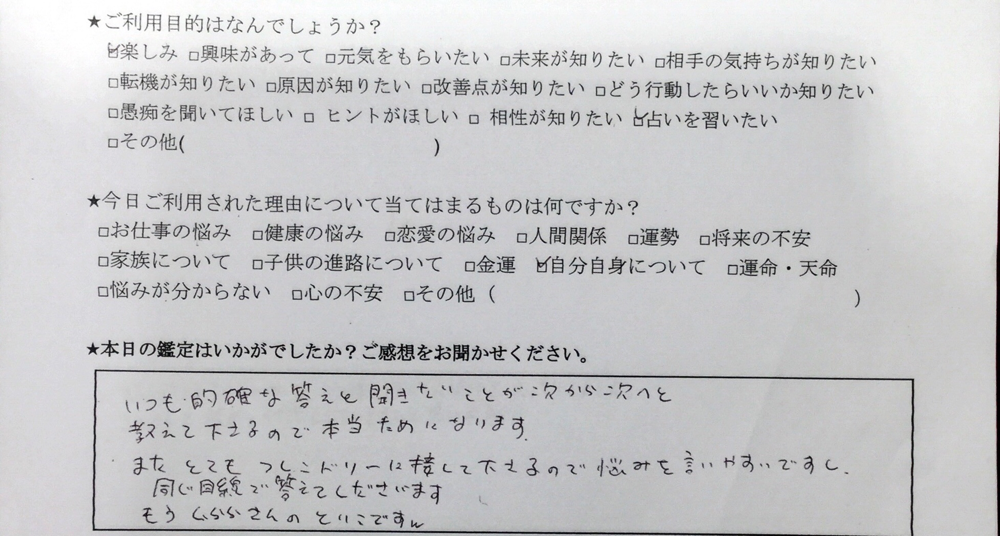 ★ご利用目的はなんでしょうか？
☑楽しみ □興味があって □元気をもらいたい □未来が知りたい □相手の気持ちが知りたい
□転機が知りたい □原因が知りたい □改善点が知りたい □どう行動したらいいか知りたい
□愚痴を聞いてほしい □ ヒントがほしい □ 相性が知りたい ☑占いを習いたい
□その他( )
★今日ご利用された理由について当てはまるものは何ですか？
□お仕事の悩み □健康の悩み □恋愛の悩み □人間関係 □運勢 □将来の不安
□家族について □子供の進路について □金運 ☑自分自身について □運命・天命
□悩みが分からない □心の不安 □その他 ( )
★本日の鑑定はいかがでしたか？ご感想をお聞かせください。
いつも的確な答えと聞きたいことが次から次へと
教えて下さるので本当ためになります。
また とても フレンドリーに接して下さるので悩みを言いやすいですし、
同じ目線で答えてくださいます
もう さんのとりこです